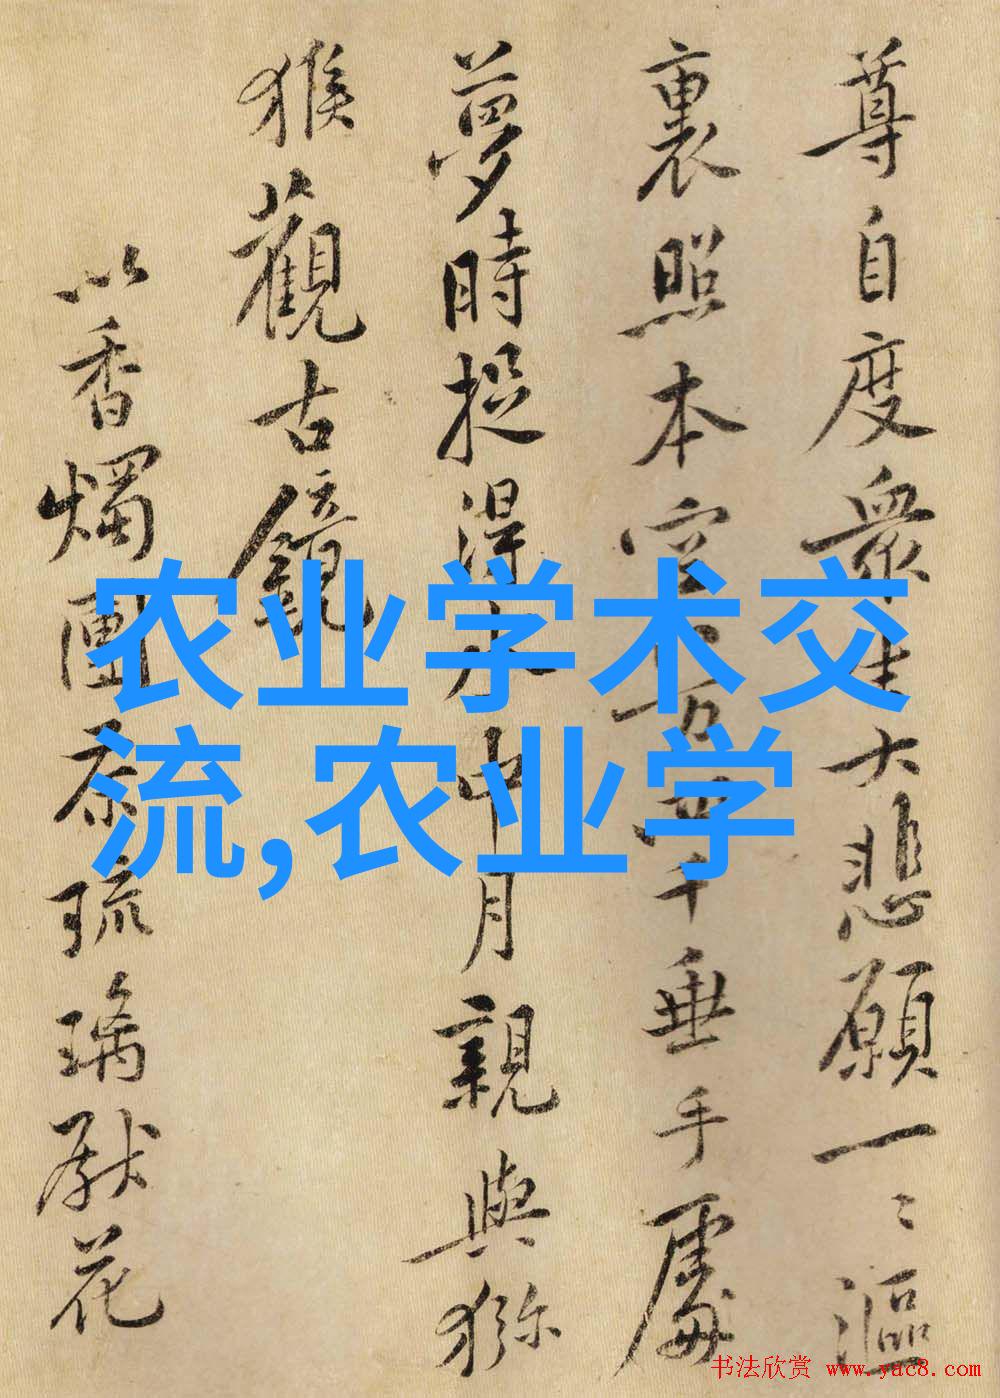 尊自度衆生大悲願一〻漚
裏照本空万世千垂手屢
夢時捉得水中月親與獼
猴觀古鏡
以香燭團茶琉璃獻花
农业学术交
流,农业学
书法欣赏 www.yac8.com